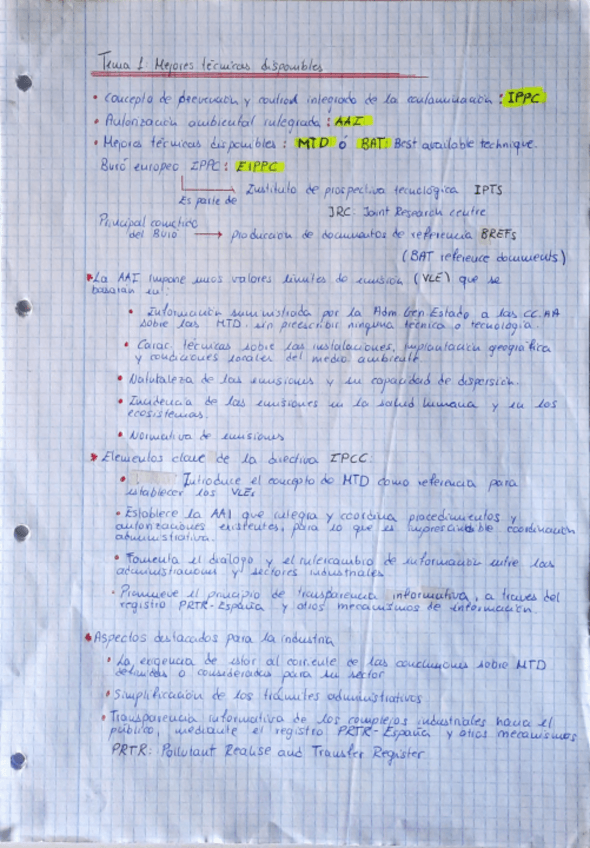 Tema 1: Mejores técnicas disponibles
• Concepto de prevención y control integrado de la contaminación: IPPC
• Autorización ambiental integrada: AAI
• Mejores técnicas disponibles: MTD ó BAT: Best available technique.
Buró europeo IPPC: EIPPC
Es parte de → Instituto de prospectiva tecnológica IPTS
JRC: Joint Research centre
Principal cometido
del Buró → producción de documentos de referencia BREFs
(BAT reference documents)
La AAI impone unos valores límites de emisión (VLE) que se
basarán en:
• Información suministrada por la Adm Gen Estado a las CC.AA
sobre las MTD. sin preescribir ninguna técnica o tecnología.
• Carac. técnicas sobre las instalaciones, implantación geográfica
y condiciones locales del medio ambiente
• Naturaleza de las emisiones y su capacidad de dispersión.
• Incidencia de las emisiones en la salud humana y en los
ecosistemas.
• Normativa de emisiones
Elementos clave de la directiva IPCC:
• Introduce el concepto de MTD como referencia para
establecer los VLEs
• Establece la AAI que integra y coordina procedimientos y
autorizaciones existentes, para lo que es imprescindible coordinación
administrativa.
• Fomenta el diálogo y el intercambio de información entre las
administraciones y sectores industriales
• Promueve el principio de transparencia informativa, a través del
registro PRTR-España y otros mecanismos de información
Aspectos destacados para la industria
• La exigencia de estar al corriente de las conclusiones sobre MTD
definidas o consideradas para su sector
• Simplificación de los trámites administrativos
• Transparencia informativa de los complejos industriales hacia el
público, mediante el registro PRTR-España y otros mecanismos
PRTR: Pollutant Realise and Transfer Register